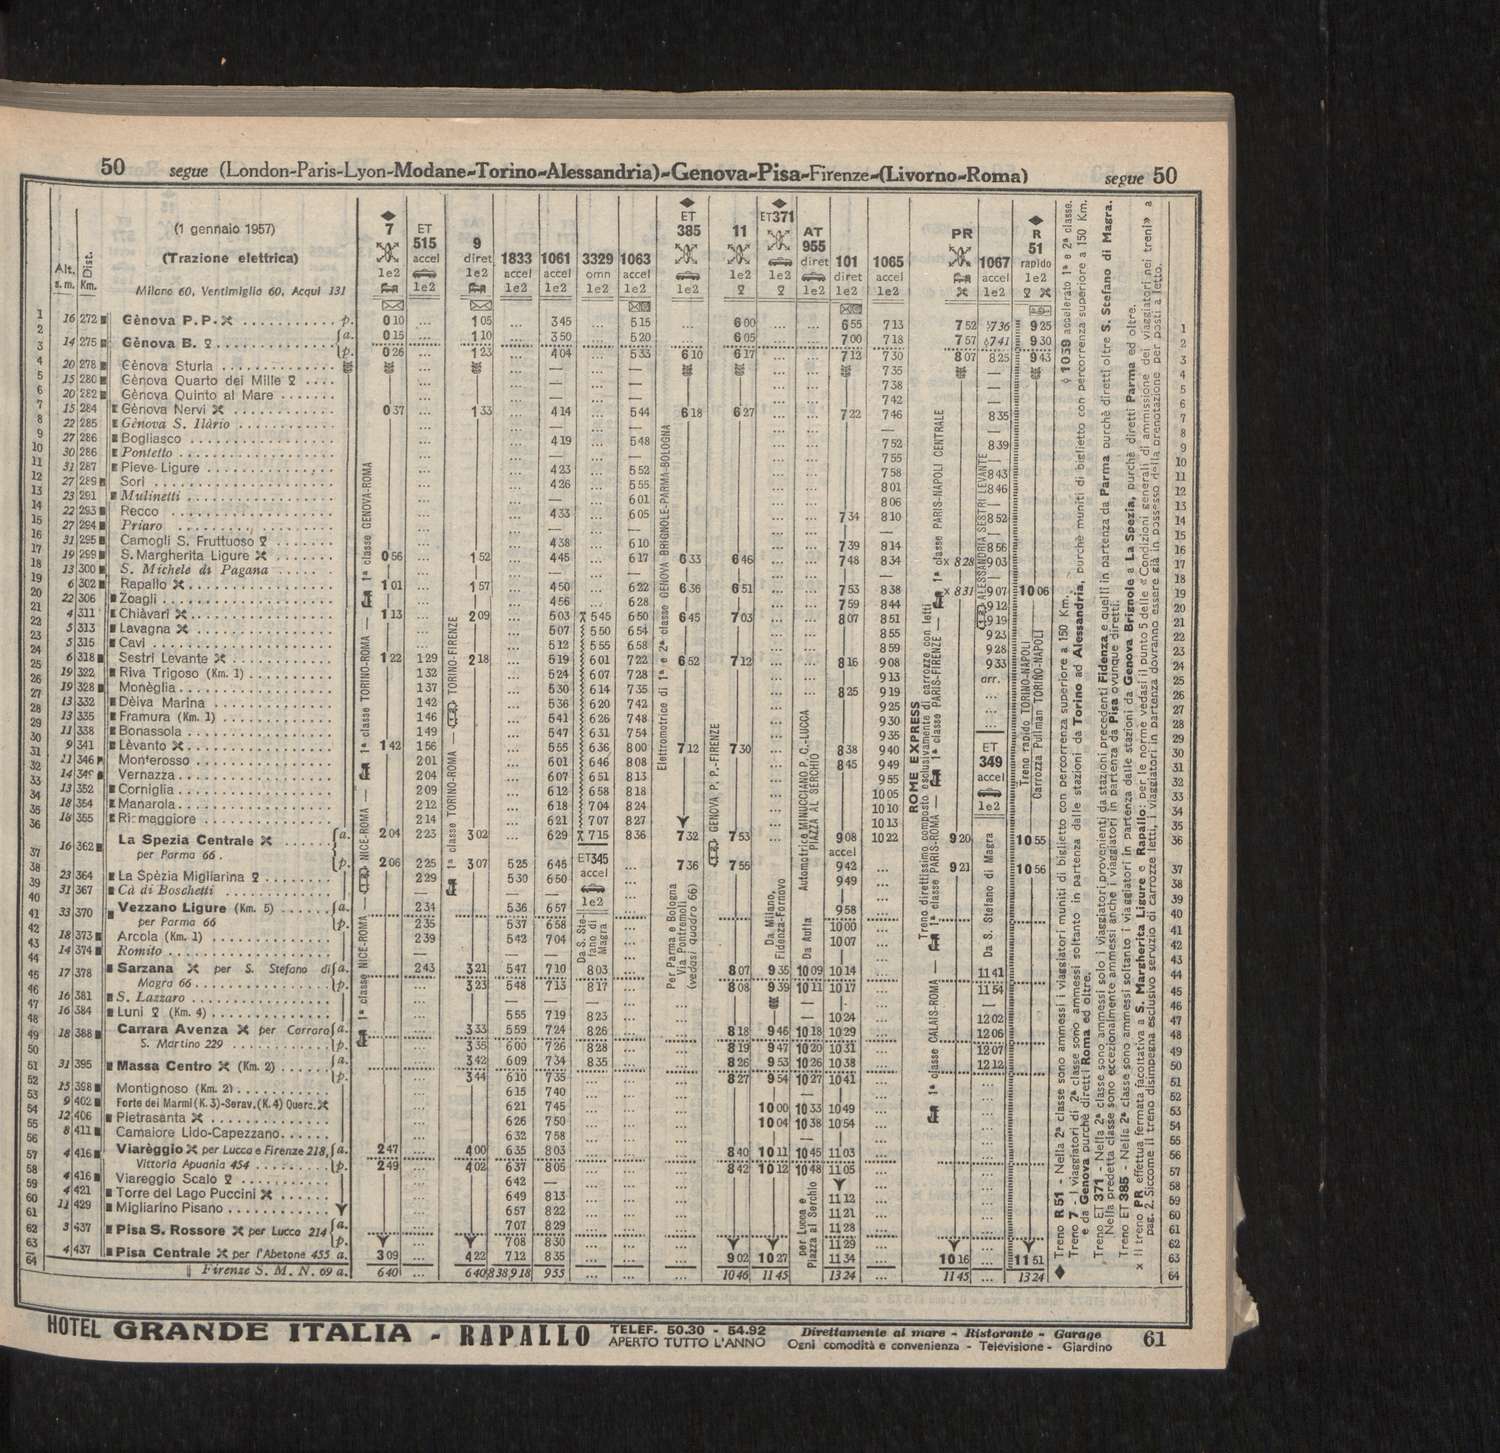 50 segue (London-Paris-Lyon-Modane-Torino-Alessandria)-Genova-Pisa-Firenze-(Livorno-Roma) segue 50
(1 gennaio 1957)
(Trazione elettrica)
Milano 60, Ventimiglia 60, Acqui 131
Alt. s. m. Dist. Km.
7 1e2
ET 515 accel 1e2
9 diret 1e2
1833 accel 1e2
1061 accel 1e2
3329 omn 1e2
1063 accel 1e2
ET 385 1e2
11 1e2
ET 371 1e2
AT 955 diret 1e2
101 diret 1e2
1065 accel 1e2
PR
1067 accel 1e2
R 51 rapido 1e2
1 16 272 Gènova P. P. p. 0 10 ... 1 05 ... 3 45 ... 5 15 ... 6 00 ... 6 55 7 13 7 52 7 36 9 25 1
2 14 275 Gènova B. a. 0 15 ... 1 10 ... 3 50 ... 5 20 ... 6 05 ... 7 00 7 18 7 57 7 41 9 30 2
3 p. 0 26 ... 1 23 ... 4 04 ... 5 33 6 10 6 17 ... 7 12 7 30 8 07 8 25 9 43 3
4 20 278 Gènova Sturia 7 35 4
5 15 280 Gènova Quarto dei Mille 7 38 5
6 20 282 Gènova Quinto al Mare 7 42 6
7 15 284 Gènova Nervi 0 37 ... 1 33 ... 4 14 ... 5 44 6 18 6 27 ... 7 22 7 46 8 35 7
8 22 285 Gènova S. Ilàrio 8
9 27 286 Bogliasco 4 19 5 48 7 52 8 39 9
10 30 286 Pontetto 7 55 10
11 31 287 Pieve Ligure 4 23 5 52 7 58 8 43 11
12 27 289 Sori 4 26 5 55 8 01 8 46 12
13 23 291 Mulinetti 6 01 8 06 13
14 22 293 Recco 4 33 6 05 7 34 8 10 8 52 14
15 27 294 Priaro 15
16 31 295 Camogli S. Fruttuoso 4 38 6 10 7 39 8 14 8 56 16
17 19 299 S. Margherita Ligure 0 56 1 52 4 45 6 17 6 33 6 46 7 48 8 34 × 8 28 9 03 17
18 13 300 S. Michele di Pagana 18
19 6 302 Rapallo 1 01 1 57 4 50 6 22 6 36 6 51 7 53 8 38 × 8 31 9 07 10 06 19
20 22 306 Zoagli 4 56 6 28 7 59 8 44 9 12 20
21 4 311 Chiàvari 1 13 2 09 5 03 5 45 6 50 6 45 7 03 8 07 8 51 9 19 21
22 5 313 Lavagna 5 07 5 50 6 54 8 55 9 23 22
23 5 315 Cavi 5 12 5 55 6 58 8 59 9 28 23
24 6 318 Sestri Levante 1 22 1 29 2 18 5 19 6 01 7 22 6 52 7 12 8 16 9 08 9 33 24
25 19 322 Riva Trigoso (Km. 1) 1 32 5 24 6 07 7 28 9 13 arr. 25
26 19 328 Monèglia 1 37 5 30 6 14 7 35 8 25 9 19 26
27 13 332 Dèiva Marina 1 42 5 36 6 20 7 42 9 25 27
28 13 335 Framura (Km. 1) 1 46 5 41 6 26 7 48 9 30 28
29 11 338 Bonassola 1 49 5 47 6 31 7 54 9 35 29
30 9 341 Lèvanto 1 42 1 56 5 55 6 36 8 00 7 12 7 30 8 38 9 40 30
31 11 346 Monterosso 2 01 6 01 6 46 8 08 8 45 9 49 31
32 14 349 Vernazza 2 04 6 07 6 51 8 13 9 55 32
33 13 352 Corniglia 2 09 6 12 6 58 8 18 10 05 33
34 18 354 Manarola 2 12 6 18 7 04 8 24 10 10 34
35 18 355 Riomaggiore 2 14 6 21 7 07 8 27 10 13 35
ET 349 accel 1e2
36 16 362 La Spezia Centrale a. 2 04 2 23 3 02 ... 6 29 7 15 8 36 7 32 7 53 9 08 10 22 9 20 10 55 36
accel
ET345 accel 1e2
37 per Parma 66 p. 2 06 2 25 3 07 5 25 6 45 7 36 7 55 9 42 9 21 10 56 37
38 23 364 La Spèzia Migliarina 2 29 5 30 6 50 9 49 38
39 31 367 Cà di Boschetti 39
40 33 370 Vezzano Ligure (Km. 5) a. 2 34 5 36 6 57 9 58 40
41 per Parma 66 p. 2 35 5 37 6 58 10 00 41
42 18 373 Arcola (Km. 1) 2 39 5 42 7 04 10 07 42
43 14 374 Romito 43
44 17 378 Sarzana per S. Stefano di a. 2 43 3 21 5 47 7 10 8 03 8 07 9 35 10 09 10 14 11 41 44
45 Magra 66 p. 3 23 5 48 7 13 8 17 8 08 9 39 10 11 10 17 11 54 45
46 16 381 S. Lazzaro 46
47 16 384 Luni (Km. 4) 5 55 7 19 8 23 10 24 12 02 47
48 18 388 Carrara Avenza per Carrara a. 3 33 5 59 7 24 8 26 8 18 9 46 10 18 10 29 12 06 48
49 S. Martino 229 p. 3 35 6 00 7 26 8 28 8 19 9 47 10 20 10 31 12 07 49
50 31 395 Massa Centro (Km. 2) a. 3 42 6 09 7 34 8 35 8 26 9 53 10 26 10 38 12 12 50
51 p. 3 44 6 10 7 35 8 27 9 54 10 27 10 41 51
52 25 398 Montignoso (Km. 2) 6 15 7 40 52
53 9 402 Forte dei Marmi (K. 3)-Serav. (K. 4) Querc. 6 21 7 45 10 00 10 33 10 49 53
54 12 406 Pietrasanta 6 26 7 50 10 04 10 38 10 54 54
55 8 411 Camaiore Lido-Capezzano 6 32 7 58 55
56 4 416 Viarèggio per Lucca e Firenze 218, a. 2 47 4 00 6 35 8 03 8 40 10 11 10 45 11 03 56
57 Vittoria Apuania 454 p. 2 49 4 02 6 37 8 05 8 42 10 12 10 48 11 05 57
58 4 416 Viareggio Scalo 6 42 58
59 4 421 Torre del Lago Puccini 6 49 8 13 11 12 59
60 11 429 Migliarino Pisano 6 57 8 22 11 21 60
61 3 437 Pisa S. Rossore per Lucca 214 a. 7 07 8 29 11 28 61
62 p. 7 08 8 30 11 29 62
63 4 437 Pisa Centrale per l'Abetone 455 a. 3 09 4 22 7 12 8 35 9 02 10 27 11 34 10 16 11 51 63
64 Firenze S. M. N. 69 a. 6 40 ... 6 40 8 38 9 18 9 55 ... 10 46 11 45 13 24 ... 11 45 ... 13 24 64
1ª classe NICE-ROMA — 1ª classe TORINO-ROMA — 1ª classe GENOVA-ROMA
1ª classe TORINO-ROMA — TORINO-FIRENZE
Da S. Stefano di Magra
Elettromotrice di 1ª e 2ª classe GENOVA BRIGNOLE-PARMA-BOLOGNA
Per Parma e Bologna
Via Pontremoli
(vedasi quadro 66)
GENOVA P. P.-FIRENZE
Da Milano, Fidenza-Fornovo
Automotrice MINUCCIANO P. C.-LUCCA
PIAZZA AL SERCHIO
Da Aulla
per Lucca e Piazza al Serchio
ROME EXPRESS
Treno direttissimo composto esclusivamente di carrozze con letti
1ª classe CALAIS-ROMA — 1ª classe PARIS-ROMA — 1ª classe PARIS-FIRENZE — 1ª classe PARIS-NAPOLI CENTRALE
ALESSANDRIA SESTRI LEVANTE
Da S. Stefano di Magra
Treno rapido TORINO-NAPOLI
Carrozza Pullman TORINO-NAPOLI
Treno R 51 - Nella 2ª classe sono ammessi i viaggiatori muniti di biglietto con percorrenza superiore a 150 Km. 1039 accelerato 1ª e 2ª classe.
Treno 7 - I viaggiatori di 2ª classe sono ammessi soltanto in partenza dalle stazioni da Torino ad Alessandria, purchè muniti di biglietto con percorrenza superiore a 150 Km. e da Genova purchè diretti Roma ed oltre.
Treno ET 371 - Nella 2ª classe sono ammessi solo i viaggiatori provenienti da stazioni precedenti Fidenza e quelli in partenza da Parma purchè diretti oltre S. Stefano di Magra. Nella predetta classe sono eccezionalmente ammessi anche i viaggiatori in partenza da Pisa ovunque diretti.
Treno ET 385 - Nella 2ª classe sono ammessi soltanto i viaggiatori in partenza dalle stazioni da Genova Brignole a La Spezia, purchè diretti Parma ed oltre.
× Il treno PR effettua fermata facoltativa a S. Margherita Ligure e Rapallo: per le norme vedasi il punto 5 delle «Condizioni generali di ammissione dei viaggiatori nei treni» a pag. 2. Siccome il treno disimpegna esclusivo servizio di carrozze letti, i viaggiatori in partenza dovranno essere già in possesso della prenotazione per posti a letto.
HOTEL GRANDE ITALIA - RAPALLO TELEF. 50.30 - 54.92 Direttamente al mare - Ristorante - Garage 61
APERTO TUTTO L'ANNO Ogni comodità e convenienza - Televisione - Giardino